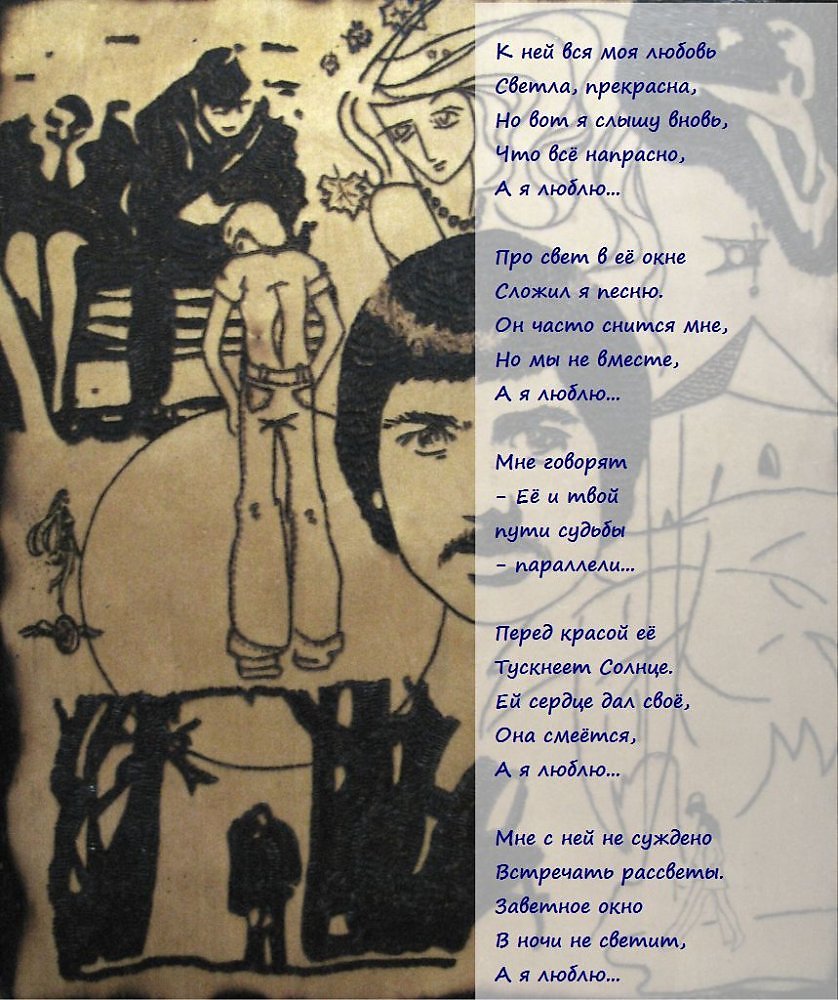 К ней вся моя любовь
Светла, прекрасна,
Но вот я слышу вновь,
Что всё напрасно,
А я люблю...
Про свет в её окне
Сложил я песню.
Он часто снится мне,
Но мы не вместе,
А я люблю...
Мне говорят
- Её и твой
пути судьбы
- параллели...
Перед красой её
Тускнеет Солнце.
Ей сердце дал своё,
Она смеётся,
А я люблю...
Мне с ней не суждено
Встречать рассветы.
Заветное окно
В ночи не светит,
А я люблю...